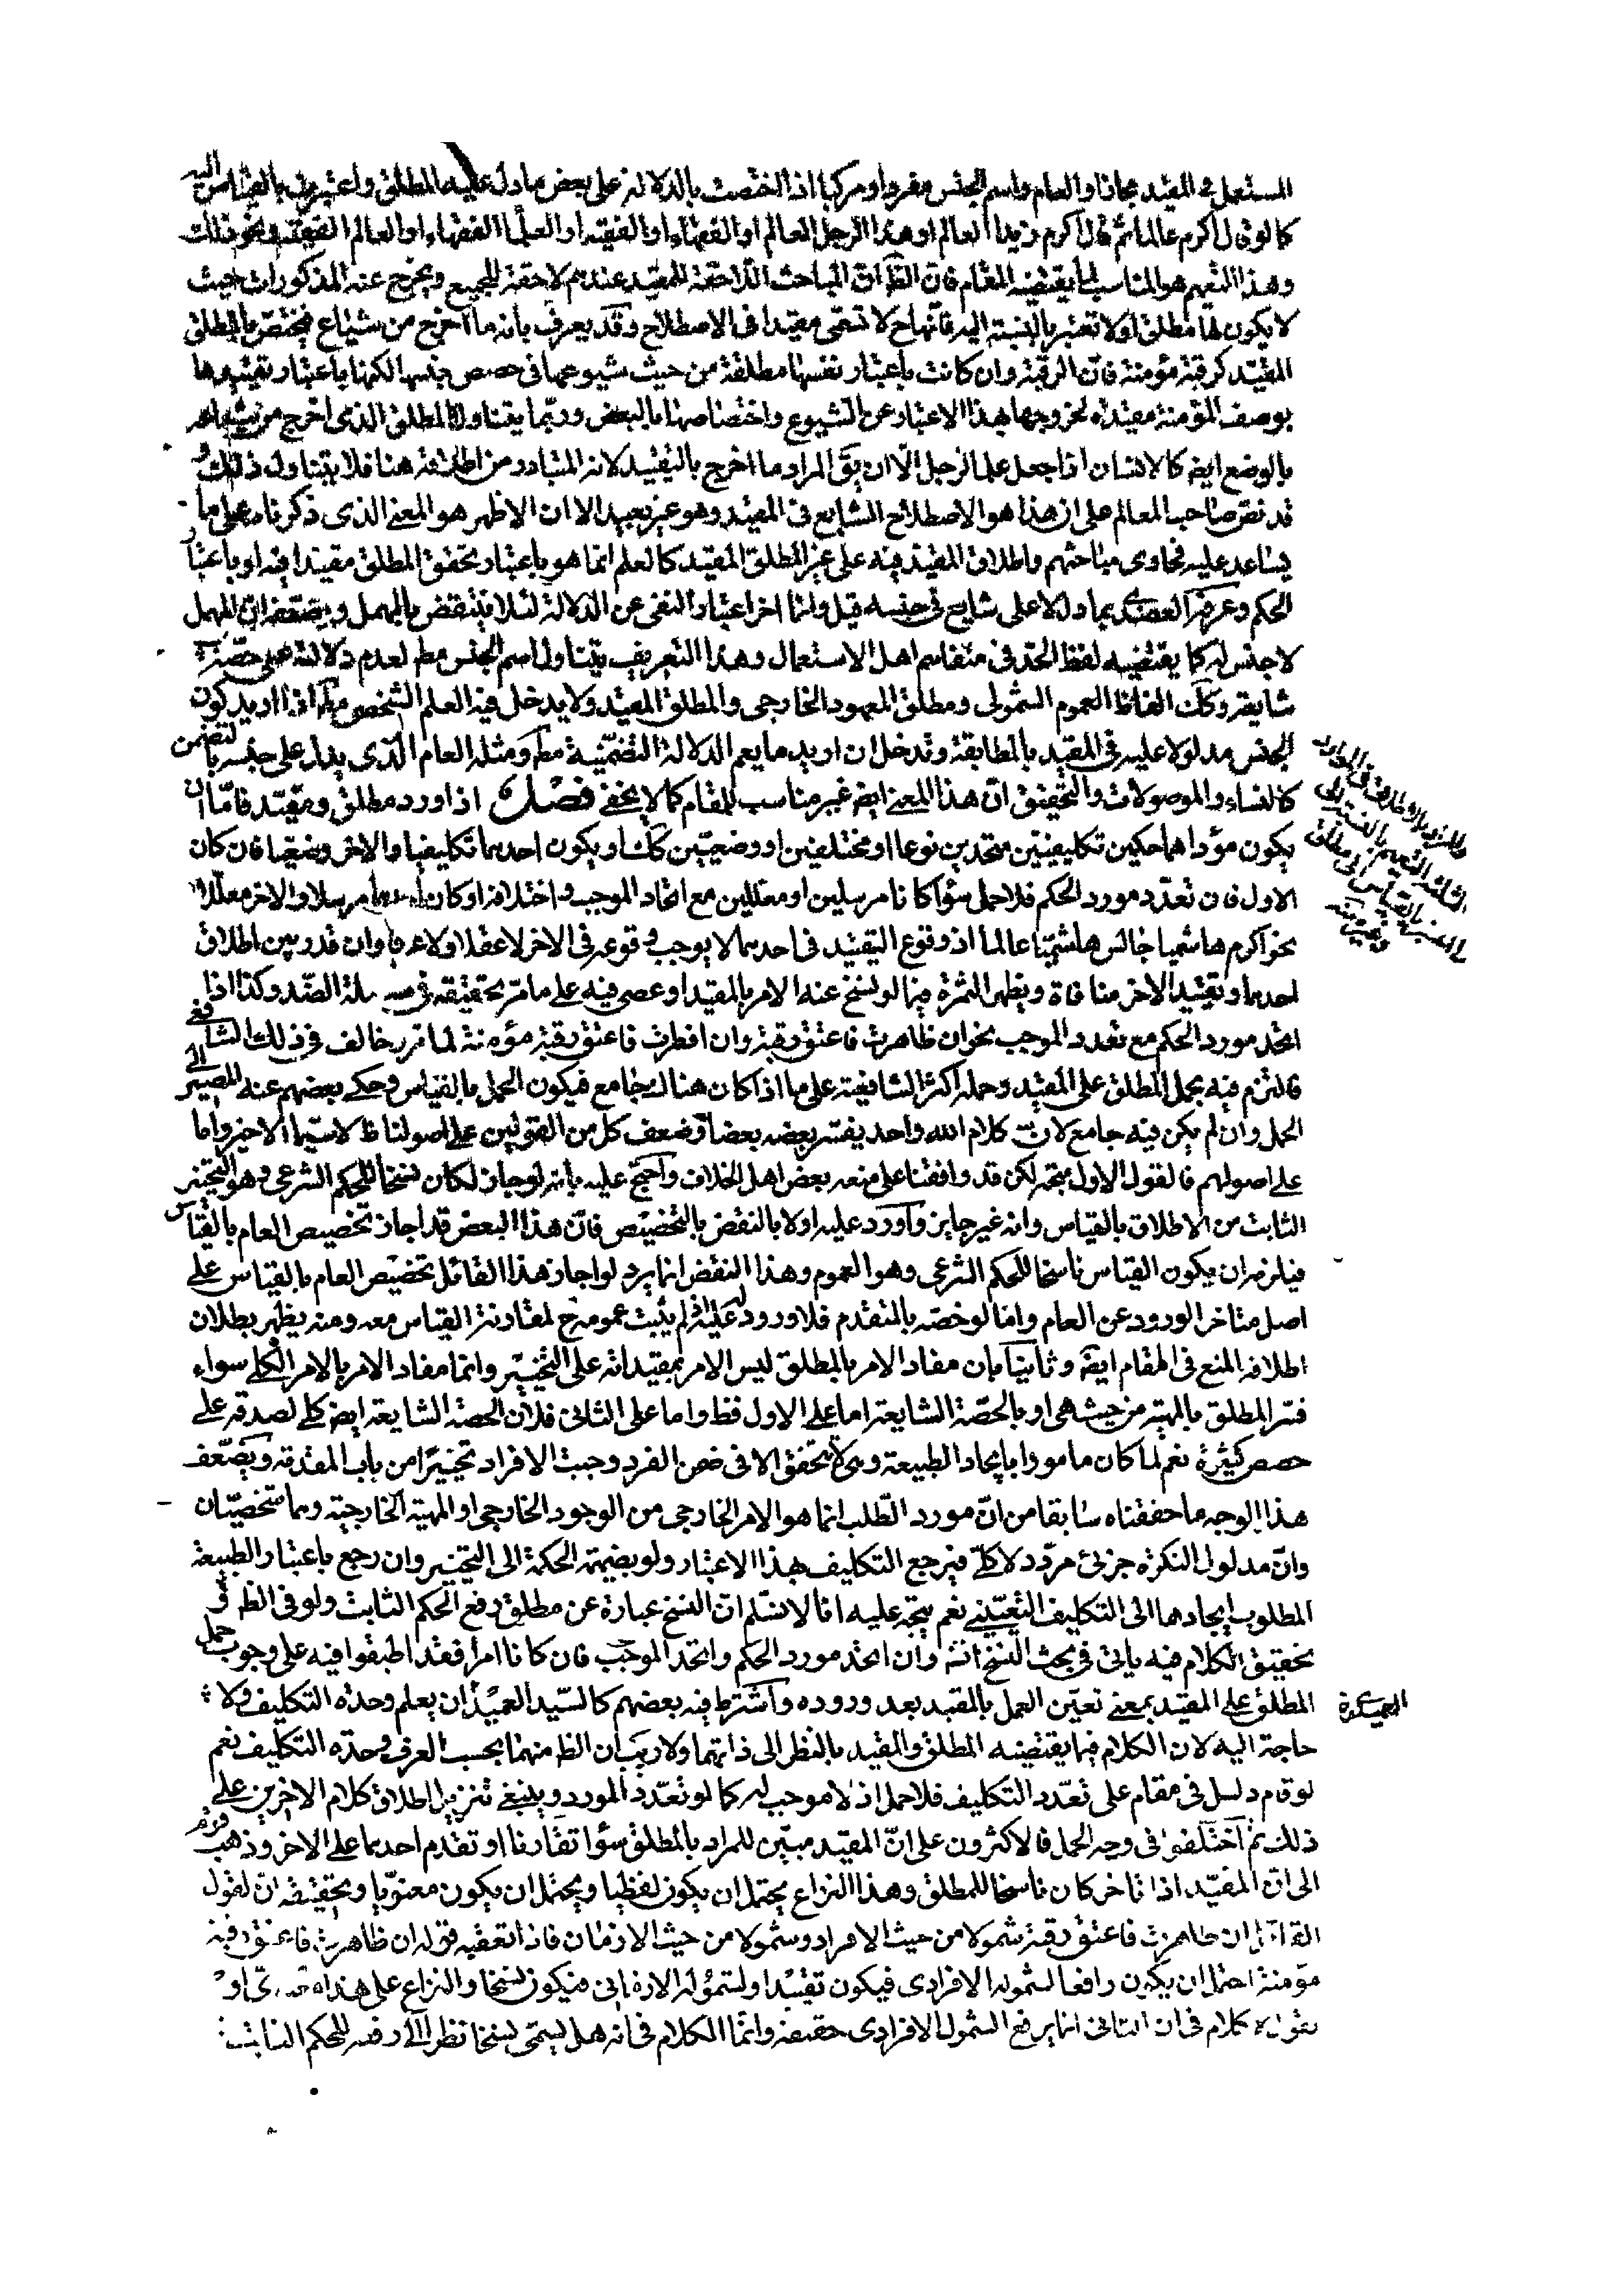 المستعمل فى المقيد مجازا والعام واسم الجنس مفردا ومركبا اذا اختصت بالدلالة على بعض ما دل عليه المطلق واعتبرت بالقياس اليه
كما لو قال اكرم عالما ثم قال اكرم زيدا العالم او هذا الرجل العالم او الفقهاء او الفقيه او العلماء الفقهاء او العالم الفقيه ونحو ذلك
وهذا التعميم هو المناسب لما يقتضيه المقام فان الظ ان المباحث اللاحقة للمقيد عندهم لاحقة للجميع ويخرج عنه المذكورات حيث
لا يكون لها مطلق او لا تعتبر بالنسبة اليه فانها ح لا تسمى مقيدا فى الاصطلاح وقد يعرف بانه ما اخرج من شياع فيختص بالمطلق
المقيد كرقبة مؤمنة فان الرقبة وان كانت باعتبار نفسها مطلقة من حيث شيوعها فى حصص جنسها لكنها باعتبار تقييدها
بوصف المؤمنة مقيدة لخروجها بهذا الاعتبار عن الشيوع واختصاصها بالبعض وربما يتناول المطلق الذى اخرج من شياعه
بالوضع ايضا كالانسان اذا جعل علما لرجل الا ان يق المراد ما اخرج بالتقييد لانه المتبادر من اطلاقه هنا فلا يتناول ذلك و
قد نص صاحب المعالم على ان هذا هو الاصطلاح الشايع فى المقيد وهو غير بعيد الا ان الاظهر هو المعنى الذى ذكرناه على ما
يساعد عليه فحاوى مباحثهم واطلاق المقيد فيه على غير المطلق المقيد كالعلم انما هو باعتبار تحقق المطلق مقيدا فيه او باعتبار
الحكم وعرفه العضدى بما دل لا على شايع فى جنسه قيل وانما اخر اعتبار النفى عن الدلالة لئلا ينتقض بالمهمل ويضعفه ان المهمل
لا جنس له كما يقتضيه لفظ الحد فى متفاهم اهل الاستعمال وهذا التعريف يتناول اسم الجنس مط لعدم دلالته على حصة
شايعة وكك الفاظ العموم الشمولى ومطلق المعهود الخارجى والمطلق المقيد ولا يدخل فيه العلم الشخصى مط اذا اريد كون
الجنس مدلولا عليه فى المقيد بالمطابقة وتدخل ان اريد ما يعم الدلالة التضمنية مط ومثله العام الذى يدل على جنسه بالتضمن
كالنساء والموصولات والتحقيق ان هذا المعنى ايضا غير مناسب للمقام كما لا يخفى فصل اذا ورد مطلق ومقيد فاما ان
يكون مؤداهما حكمين تكليفيين متحدين نوعا او مختلفين او وضعيين كك او يكون احدهما تكليفيا والاخر وضعيا فان كان
الاول فان تعدد مورد الحكم فلا حمل سواء كانا مرسلين او معللين مع اتحاد الموجب واختلافه او كان احدهما مرسلا والاخر معللا
نحو اكرم هاشميا جالس هاشميا عالما اذ وقوع التقييد فى احدهما لا يوجب وقوعه فى الاخر لا عقلا ولا عرفا وان قدر بين اطلاق
احدهما وتقييد الاخر منافاة ويظهر الثمرة فيما لو نسخ عنه الامر بالمقيد او عصى فيه على ما مر تحقيقه فى مسئلة الضد وكذا اذا
اتحد مورد الحكم مع تعدد الموجب نحو ان ظاهرت فاعتق رقبة وان افطرت فاعتق رقبة مؤمنة لما مر وخالف فى ذلك الشافعى
فالتزم فيه بحمل المطلق على المقيد وحمله اكثر الشافعية على ما اذا كان هناك جامع فيكون الحمل بالقياس وحكى بعضهم عنه المصير الى
الحمل وان لم يكن فيه جامع لان كلام الله واحد يفسر بعضه بعضا وضعف كل من القولين على اصولنا ظ لا سيما الاخير واما
على اصولهم فالقول الاول متجه لكن قد وافقنا على منعه بعض اهل الخلاف واحتج عليه بانه لو جاز لكان نسخا للحكم الشرعى وهو التخيير
الثابت من الاطلاق بالقياس وانه غير جايز واورد عليه اولا بالنقض بالتخصيص فان هذا البعض قد اجاز تخصيص العام بالقياس
فيلزم ان يكون القياس ناسخا للحكم الشرعى وهو العموم وهذا النقض انما يرد لو اجاز هذا القائل تخصيص العام بالقياس على
اصل متاخر الورود عن العام واما لو خصه بالمتقدم فلا ورود له عليه اذ لم يثبت عمومه ح لمقارنة القياس معه ومنه يظهر بطلان
اطلاقه المنع فى المقام ايضا وثانيا بان مفاد الامر بالمطلق ليس الامر بمقيداته على التخيير وانما مفاد الامر بالامر الكلى سواء
فسر المطلق بالمهية من حيث هى او بالحصة الشايعة اما على الاول فظ واما على الثانى فلان الحصة الشايعة ايضا كلى لصدقه على
حصص كثيرة نعم لما كان مامورا بايجاد الطبيعة وهى لا تتحقق الا فى ضمن الفرد وجبت الافراد تخييرا من باب المقدمة ويضعف
هذا الوجه ما حققناه سابقا من ان مورد الطلب انما هو الامر الخارجى من الوجود الخارجى او المهية الخارجية وهما شخصيتان
وان مدلول النكرة جزئى مردد لا كلى فيرجع التكليف بهذا الاعتبار ولو بضميمة الحكمة الى التخيير وان رجع باعتبار الطبيعة
المطلوب ايجادهما الى التكليف التعيينى نعم يتجه عليه انا لا نسلم ان النسخ عبارة عن مطلق رفع الحكم الثابت ولو فى الظ و
تحقيق الكلام فيه ياتى فى بحث النسخ انش وان اتحد مورد الحكم واتحد الموجب فان كانا امرا فقد اطبقوا فيه على وجوب حمل
المطلق على المقيد بمعنى تعين العمل بالمقيد بعد وروده واشترط فيه بعضهم كالسيد العميد ان يعلم وحدة التكليف ولا
حاجة اليه لان الكلام فيما يقتضيه المطلق والمقيد بالنظر الى ذاتهما ولا ريب ان الظ منهما بحسب العرف وحدة التكليف نعم
لو قام دليل فى مقام على تعدد التكليف فلا حمل اذ لا موجب له كما لو تعدد المورد وينبغى تنزيل اطلاق كلام الاخرين على
ذلك ثم اختلفوا فى وجه الحمل فالاكثرون على ان المقيد مبين للمراد بالمطلق سواء تقارنا او تقدم احدهما على الاخر وذهب قوم
الى ان المقيد اذا تاخر كان ناسخا للمطلق وهذا النزاع يحتمل ان يكون لفظيا ويحتمل ان يكون معنويا وتحقيقه ان لقول
القائل ان ظاهرت فاعتق رقبة شمولا من حيث الافراد وشمولا من حيث الازمان فاذا تعقبه قوله ان ظاهرت فاعتق رقبة
مؤمنة احتمل ان يكون رافعا لشموله الافرادى فيكون تقييدا ولشموله الازمانى فيكون نسخا والنزاع على هذا معنوى او
نقول لا كلام فى ان الثانى انما يرفع الشمول الافرادى حقيقة وانما الكلام فى انه هل يسمى نسخا نظرا الى رفعه للحكم الثابت